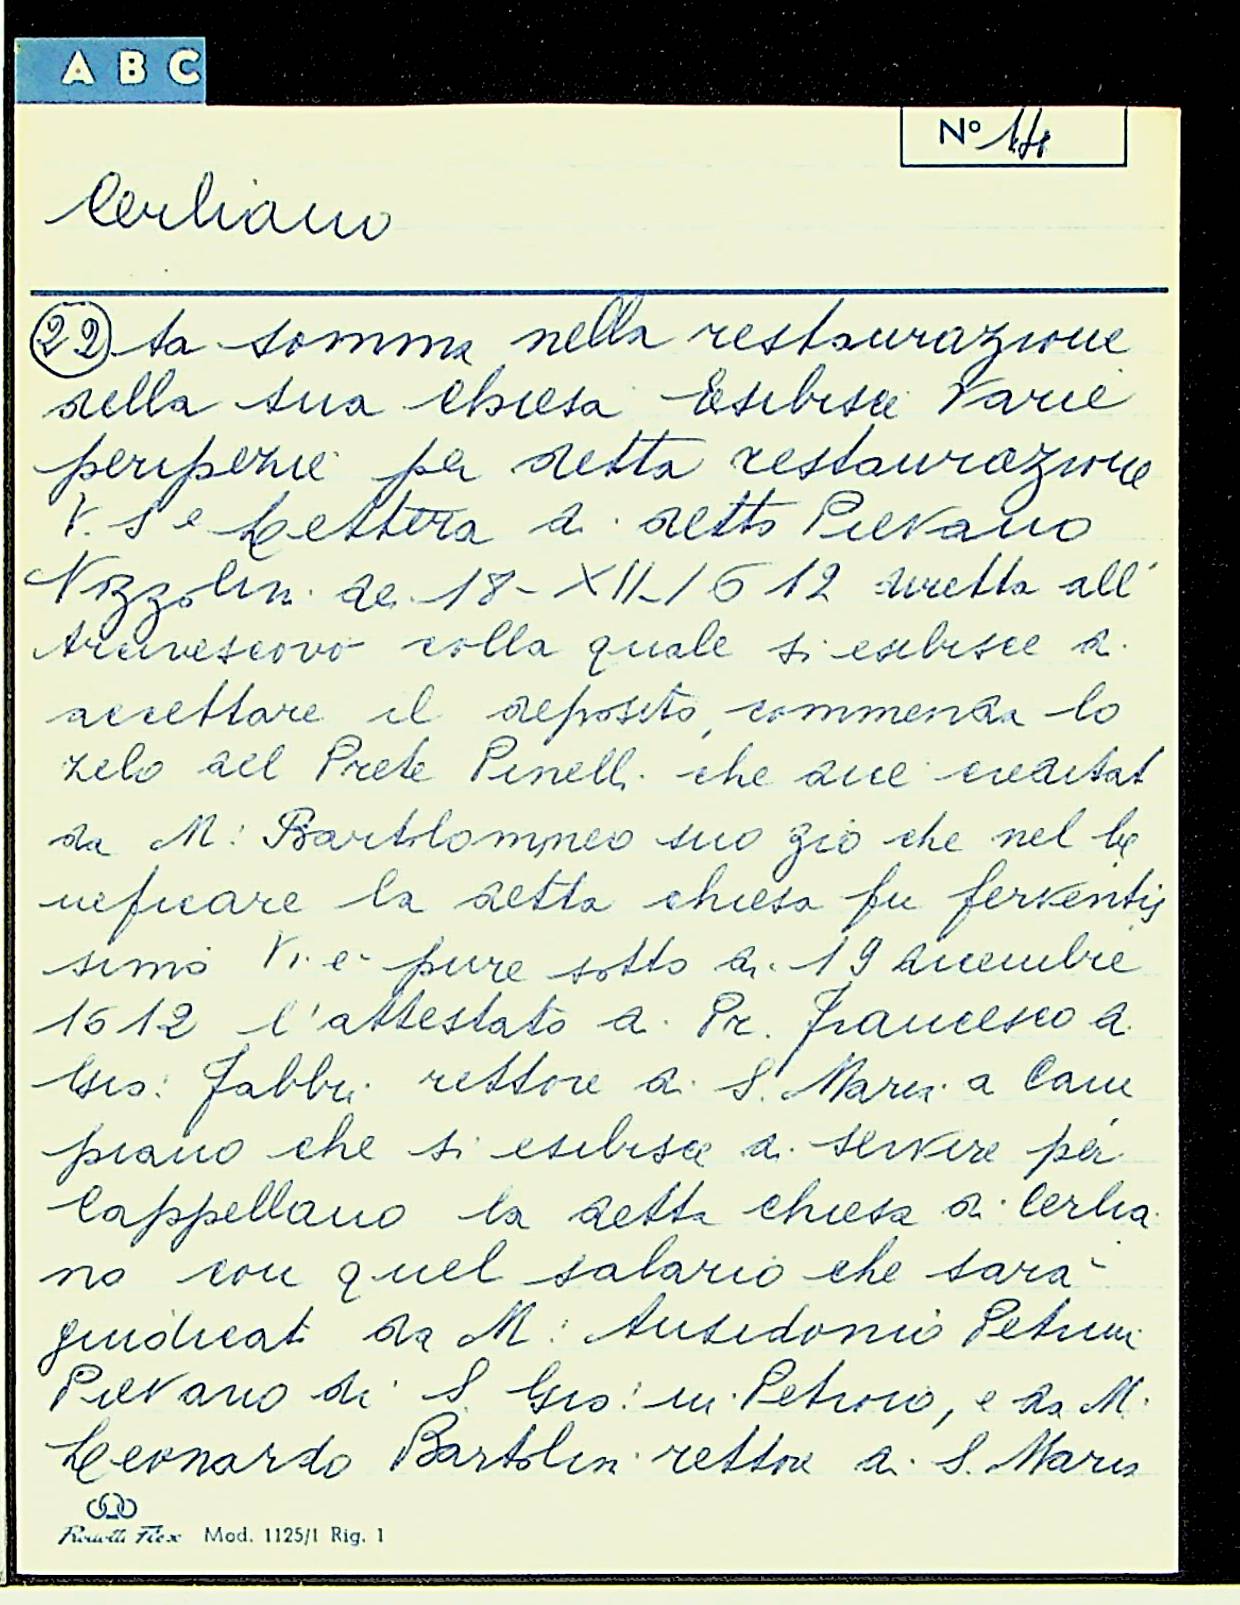 A B C
Nº
Cerliano
22 ta somma nella restaurazione
della sua chiesa Esibisce varie
periperie per detta restaurazione
V. S e Lettera di detto Pievano
Nozzolin. de. 18-XII-1612 diretta all'
Arcivescovo colla quale si esibisce di
accettare il deposito, commenda lo
zelo del Prete Pinelli che dice ereditat
da M: Bartolommeo suo zio che nel be
neficare la detta chiesa fu ferventis
simo Vi è pure sotto di 19 dicembre
1612 l'attestato di Pr. Francesco di
Gio: Fabbri rettore di S. Maria a Cam
piano che si esibisce di servire per
Cappellano la detta chiesa di Cerlia
no con quel salario che sarà
giudicat da M: Ausidonio Petrucci
Pievano di S. Gio: in Petroio, e da M.
Leonardo Bartolin rettore di S. Maria
Mod. 1125/1 Rig. 1